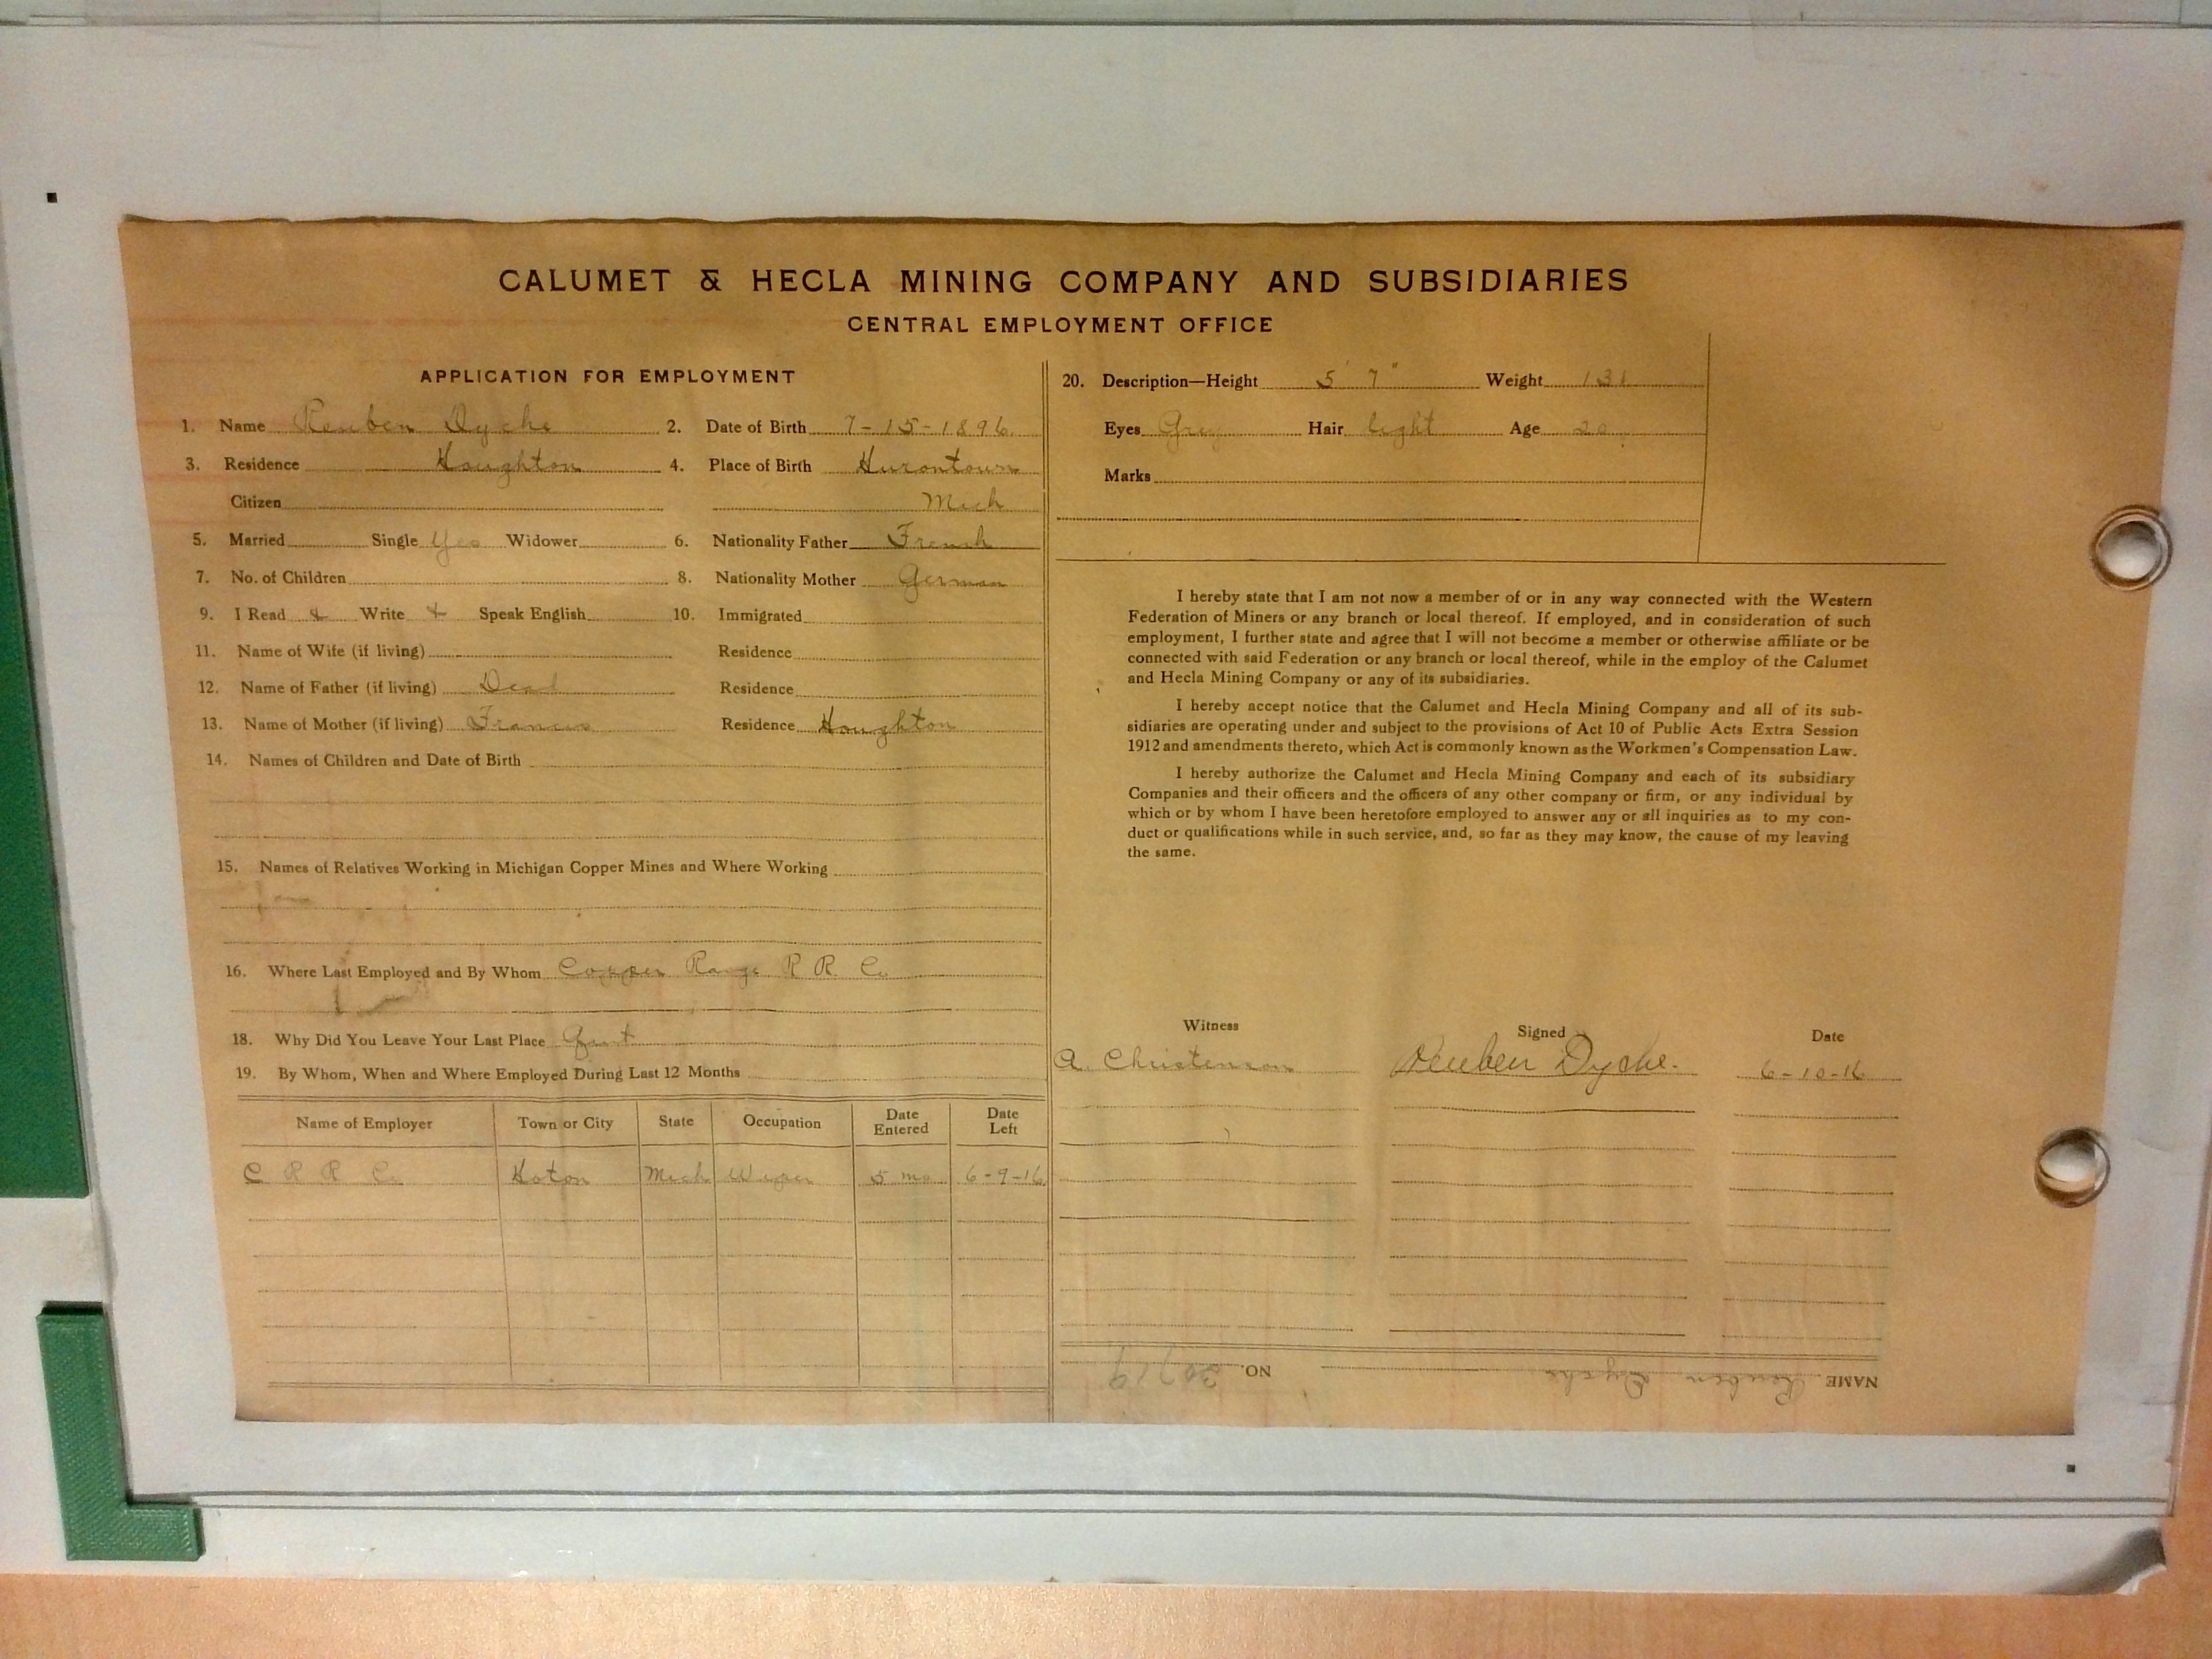 CALUMET & HECLA MINING COMPANY AND SUBSIDIARIES
CENTRAL EMPLOYMENT OFFICE
APPLICATION FOR EMPLOYMENT
1. Name Reuben Dyche 2. Date of Birth 7-15-1896
3. Residence Houghton 4. Place of Birth Hurontown
Citizen Mich
5. Married Single Yes Widower 6. Nationality Father French
7. No. of Children 8. Nationality Mother German
9. I Read & Write & Speak English 10. Immigrated
11. Name of Wife (if living) Residence
12. Name of Father (if living) Dead Residence
13. Name of Mother (if living) Francis Residence Houghton
14. Names of Children and Date of Birth
15. Names of Relatives Working in Michigan Copper Mines and Where Working
16. Where Last Employed and By Whom Copper Range R R Co
18. Why Did You Leave Your Last Place Quit
19. By Whom, When and Where Employed During Last 12 Months
Name of Employer Town or City State Occupation Date Entered Date Left
C R R Co Hoton Mich Wiper 5 mo 6-9-16
20. Description—Height 5' 7" Weight 131
Eyes Grey Hair light Age 20
Marks
I hereby state that I am not now a member of or in any way connected with the Western
Federation of Miners or any branch or local thereof. If employed, and in consideration of such
employment, I further state and agree that I will not become a member or otherwise affiliate or be
connected with said Federation or any branch or local thereof, while in the employ of the Calumet
and Hecla Mining Company or any of its subsidiaries.
I hereby accept notice that the Calumet and Hecla Mining Company and all of its sub-
sidiaries are operating under and subject to the provisions of Act 10 of Public Acts Extra Session
1912 and amendments thereto, which Act is commonly known as the Workmen's Compensation Law.
I hereby authorize the Calumet and Hecla Mining Company and each of its subsidiary
Companies and their officers and the officers of any other company or firm, or any individual by
which or by whom I have been heretofore employed to answer any or all inquiries as to my con-
duct or qualifications while in such service, and, so far as they may know, the cause of my leaving
the same.
Witness Signed Date
A. Christenson Reuben Dyche. 6-10-16
NAME Reuben Dyche NO. 30719